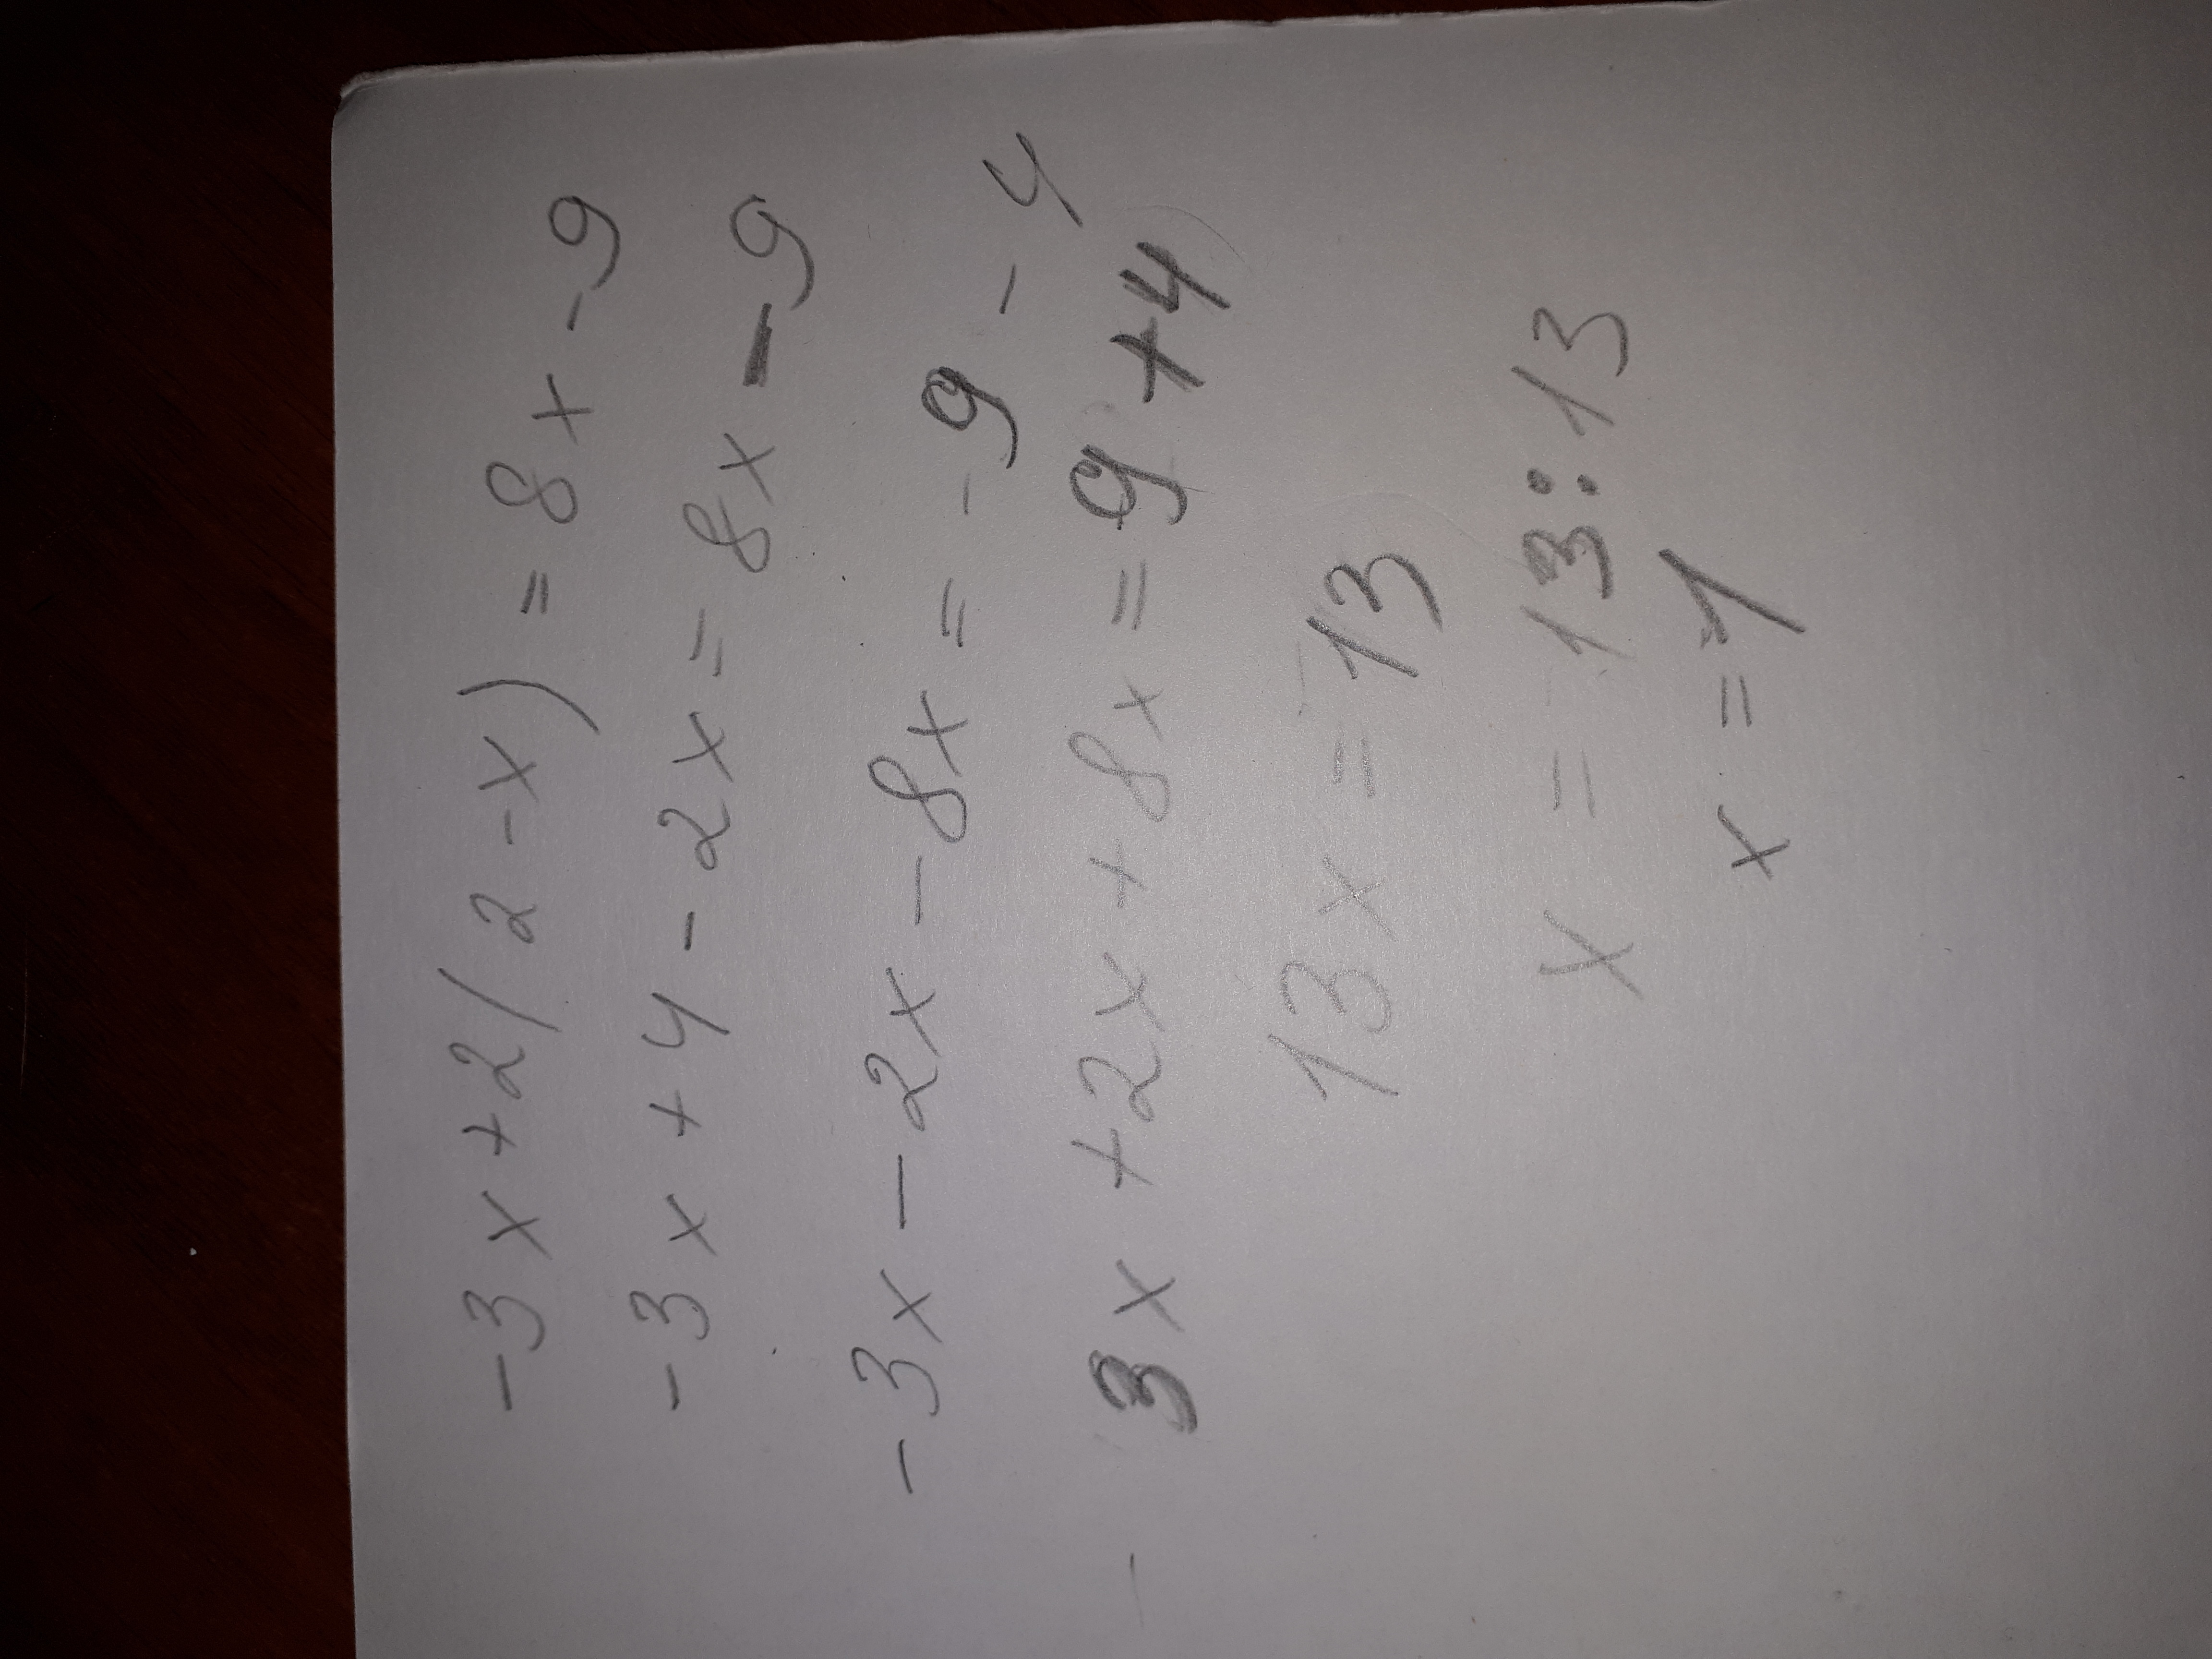 -3x+2(2-x)=8x-9
-3x+4-2x=8x-9
-3x-2x-8x=-9-4
3x+2x+8x=9+4
13x=13
x=13:13
x=1